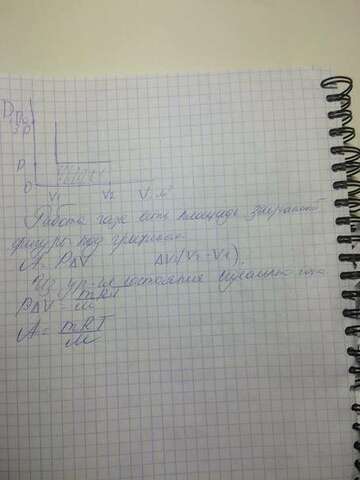 P, Па
3P
P
0
V₁
V₂
V, м³
Работа газа есть площадь
фигуры под графиком
A = PΔV ΔV(V₂ - V₁)
Из ур-ия состояния идеального газа
PΔV = mRT/M
A = mRT/M